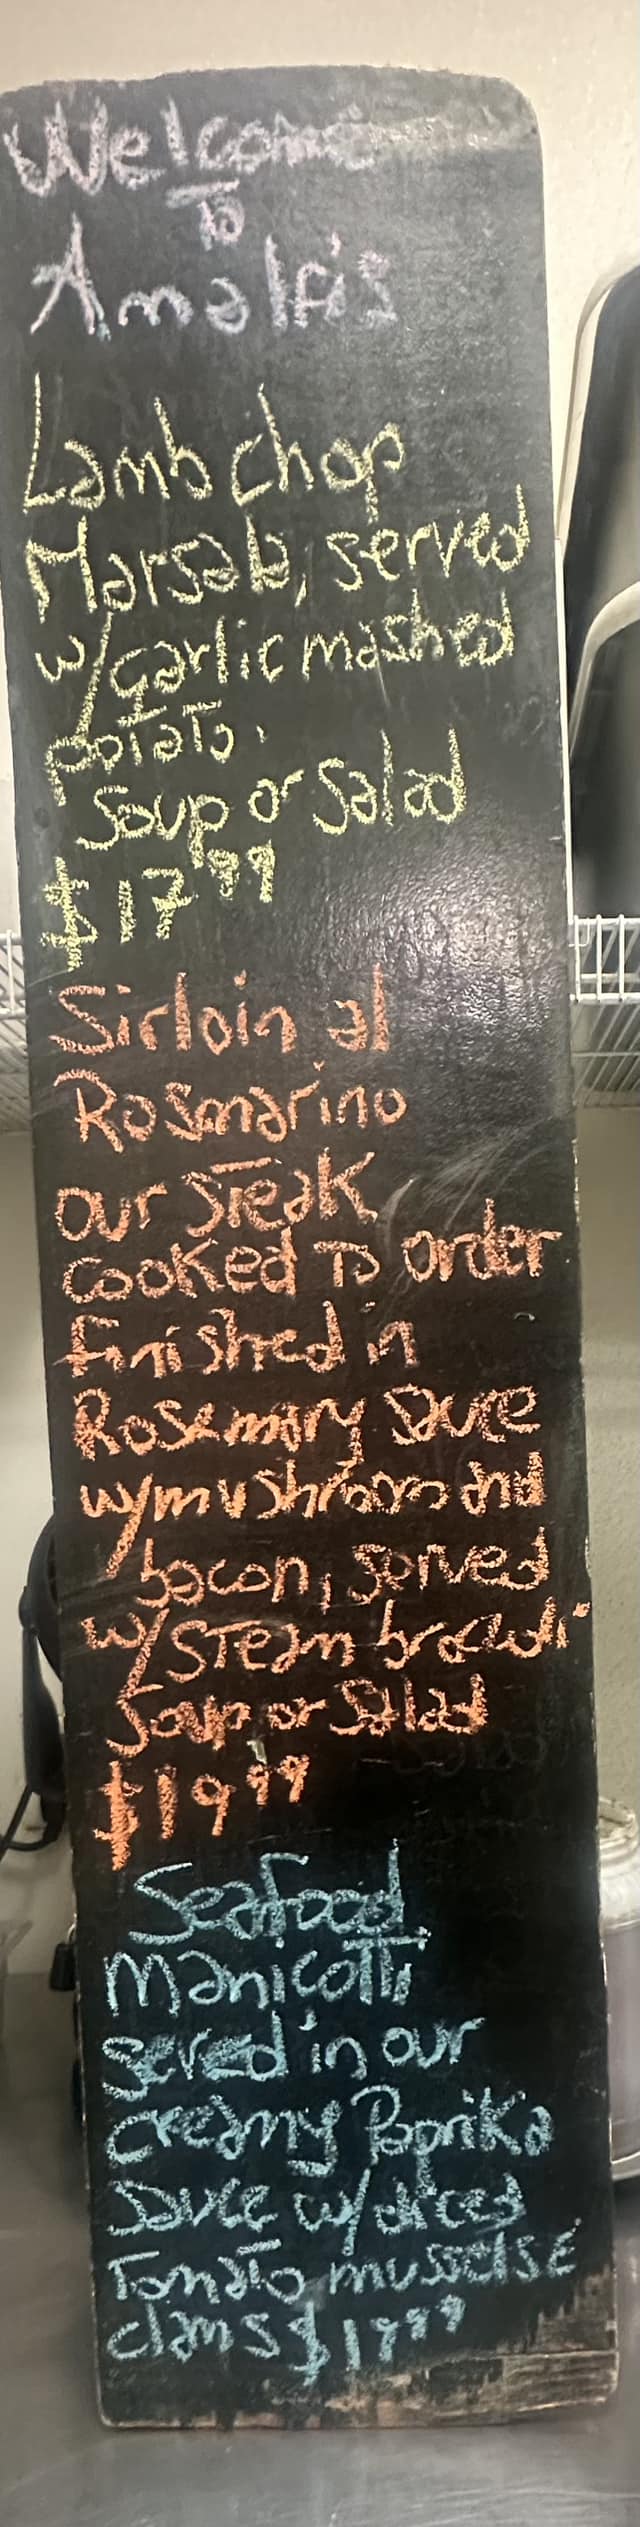 Welcome
To
Amalfi's
Lamb chop
Marsala, served
w/garlic mashed
potato.
Soup or Salad
$17.99
Sirloin al
Rosmarino
our steak
cooked To order
finished in
Rosemary Sauce
w/mushroom and
bacon, served
w/steam broccoli
Soup or Salad
$19.99
Seafood
manicotti
served in our
creamy Paprika
sauce w/diced
Tomato mussels &
clams $